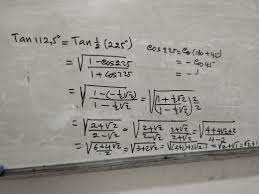 Tan 112,5° = Tan ½ (225°)
cos 225 = cos (180+45)
= - cos 45
= √(1-cos225 / 1+cos225)
= √(1-(-½√2) / 1-(-½√2)) = √((1+½√2 / 1-½√2) 2/2)
= √(2+√2 / 2-√2) = √(2+√2 / 2-√2 · 2+√2 / 2+√2) = √(4+4√2+2 / 2)
= √(6+4√2 / 2) = √(3+2√2) = √((2+1)+2√2·1) = √2+√1 = √2+1